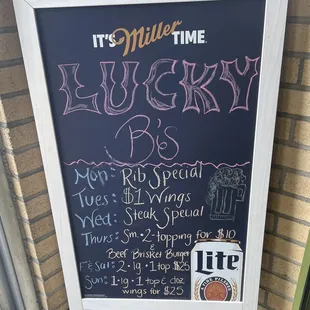 IT'S Miller TIME
LUCKY
B's
Mon: Rib Special
Tues: $1 Wings
Wed: Steak Special
Thurs: Sm. 2-topping for $10
&
Beef Brisket Burger
Fri & Sat: 2-lg 1 top $25
Sun: 1-lg 1 top & doz
wings for $25
Lite